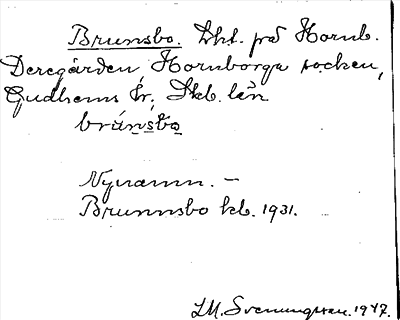 Brunsbo. Lht. på Hornb.
Deregården, Hornborga socken,
Gudhems hr, Skb. län
brúnsbo
Nynamn. –
Brunnsbo kb. 1931.
LM. Svenungsson. 1947.